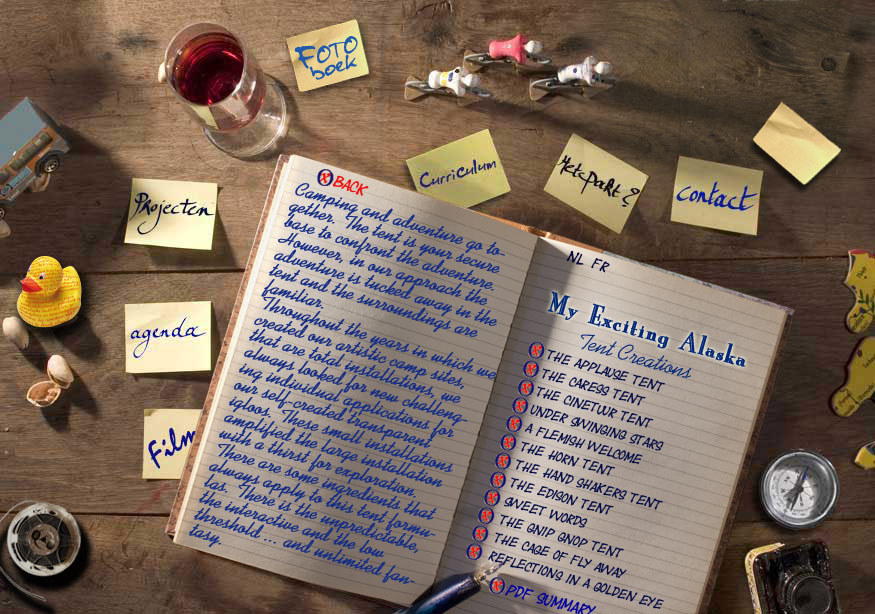 FOTO
boek
Curriculum
contact
Projecten
agenda
Film
BACK
Camping and adventure go to-
gether. The tent is your secure
base to confront the adventure.
However, in our approach the
adventure is tucked away in the
tent and the surroundings are
familiar.
Throughout the years in which we
created our artistic camp sites,
that are total installations, we
always looked for new challeng-
ing individual applications for
our self-created transparent
igloos. These small installations
amplified the large installation
with a thirst for exploration.
There are some ingredients that
always apply to this tent formu-
las. There is the unpredictable,
the interactive and the low
threshold ... and unlimited fan-
tasy.
NL FR
My Exciting Alaska
Tent Creations
THE APPLAUSE TENT
THE CARESS TENT
THE CINETUUR TENT
UNDER SWINGING STARS
A FLEMISH WELCOME
THE HORN TENT
THE HAND SHAKERS TENT
THE EDISON TENT
SWEET WORDS
THE GNIP GNOP TENT
THE CAGE OF FLY AWAY
REFLECTIONS IN A GOLDEN EYE
PDF SUMMARY